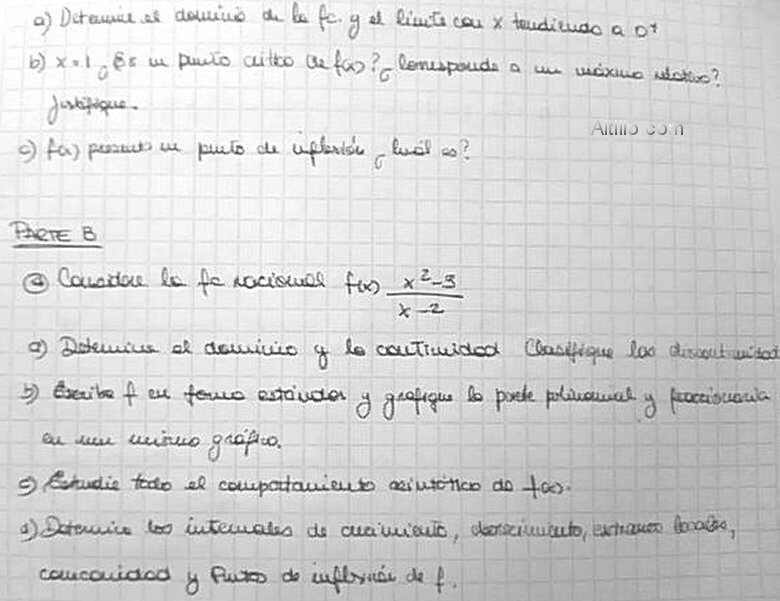 a) Determine el dominio de la fc. y el límite con x tendiendo a 0⁺
b) x=1 ¿Es un punto crítico de f(x)? ¿Corresponde a un máximo relativo?
Justifique.
Aitilio com
c) f(x) presenta un punto de inflexión ¿Cuál es?
PARTE B
④ Considere la fc racional f(x) x²-3
x-2
a) Determine el dominio y la continuidad Clasifique las discontinuidad
b) Escriba f en forma estándar y grafique la parte polinomial y fraccionaria
en un mismo gráfico.
c) Estudie todo el comportamiento asintótico de f(x).
d) Determine los intervalos de crecimiento, decrecimiento, extremos locales,
concavidad y Puntos de inflexión de f.